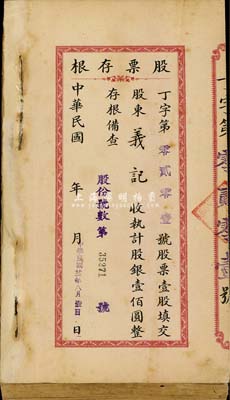 股票存根
丁字第零貳零壹號股票壹股填交
股東義記收執計股銀壹佰圓整
存根備查
股份號數第35271號
中華民國年月日